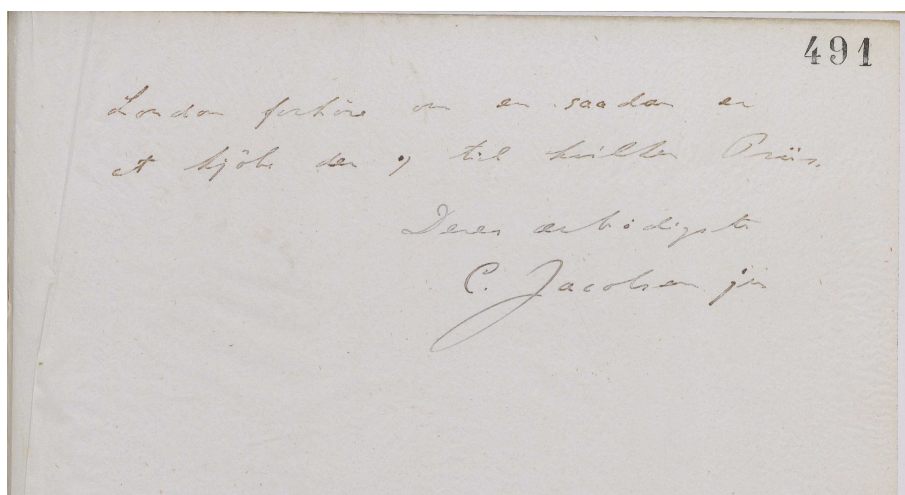 491
London forhöre om en saadan er
at kjöbe der og til hvilken Priis.
Deres ærbödigste
C. Jacobsen jun